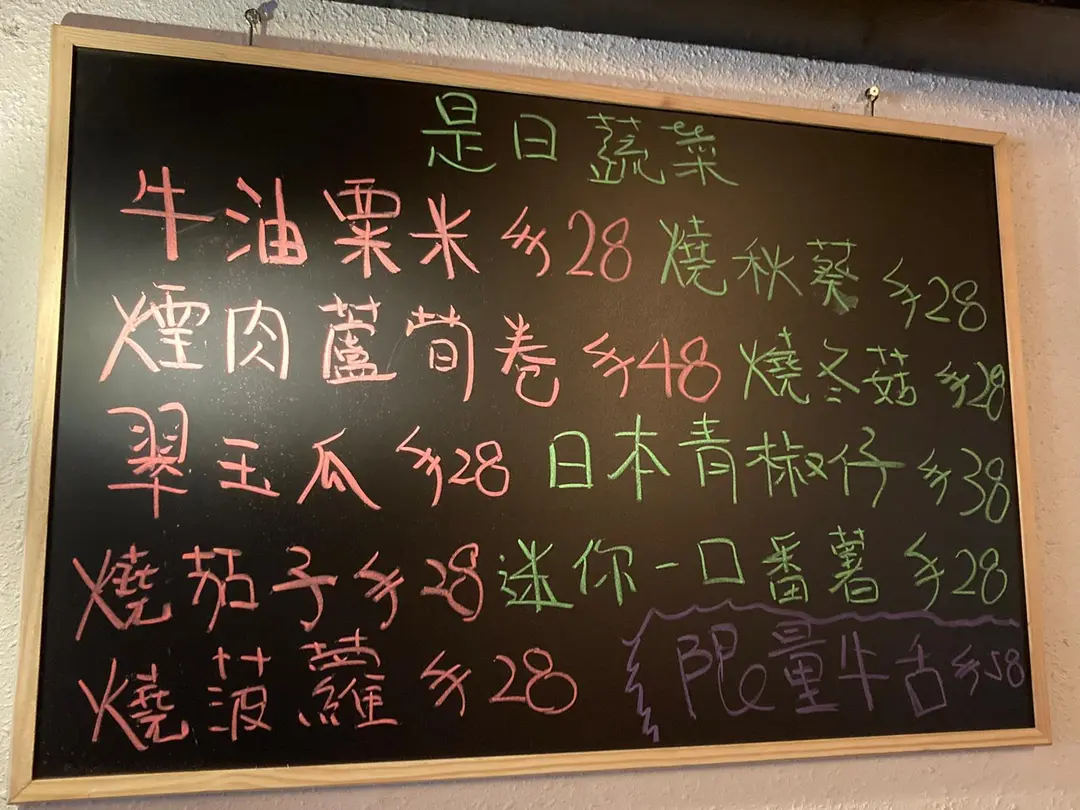 是日蔬菜
牛油粟米 $28 燒秋葵 $28
煙肉蘆荀卷 $48 燒冬菇 $28
翠玉瓜 $28 日本青椒仔 $38
燒茄子 $28 迷你一口番薯 $28
燒菠蘿 $28 限量牛古 $58